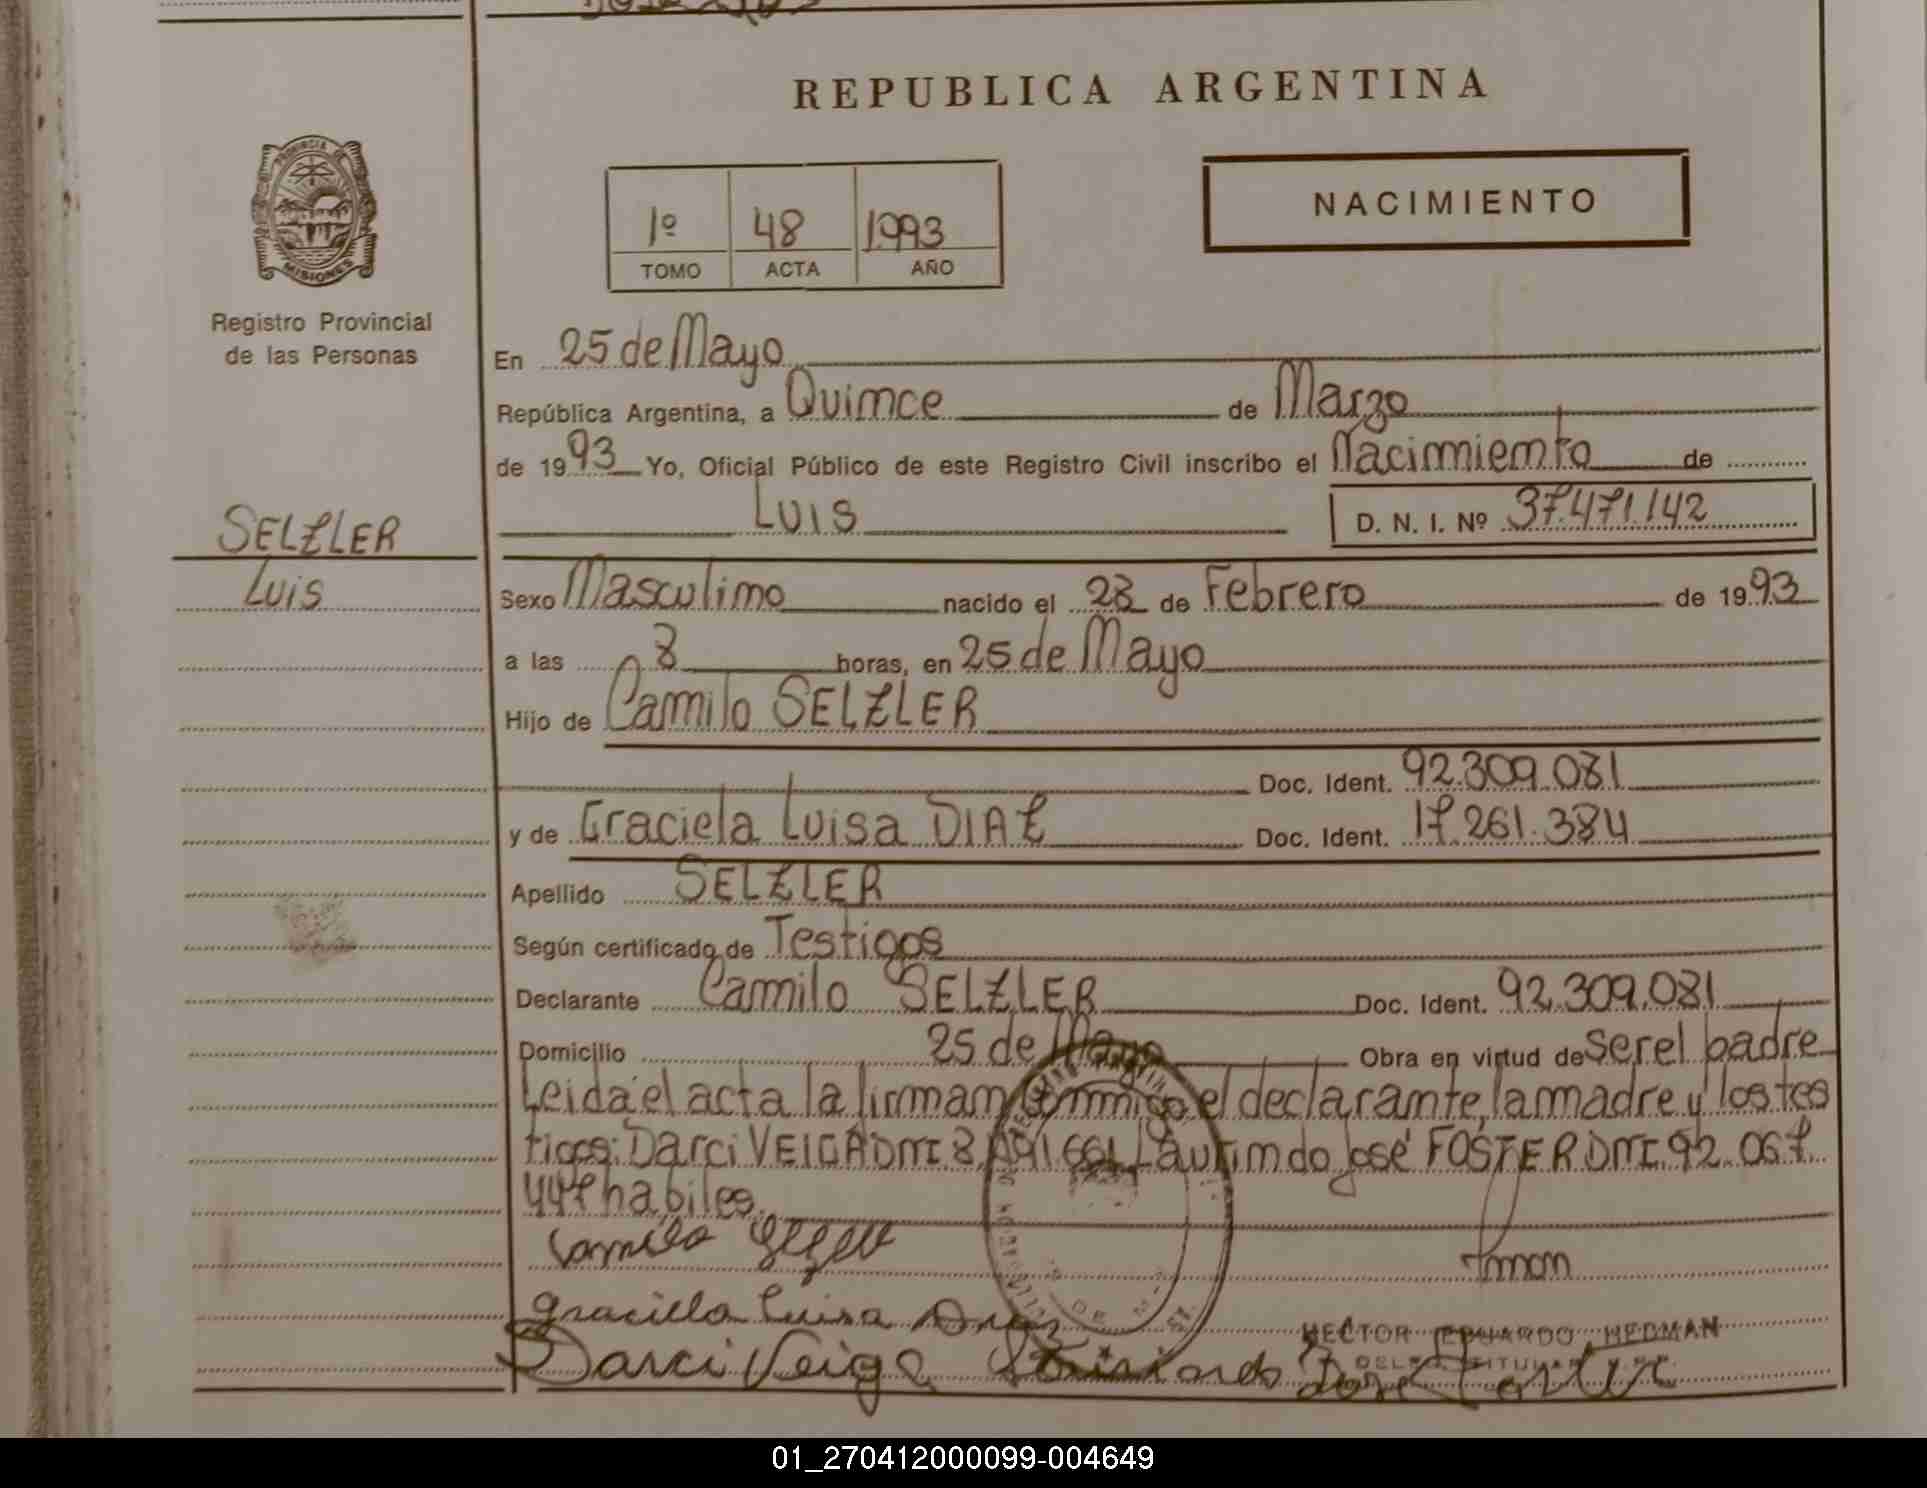 REPUBLICA ARGENTINA
PROVINCIA DE
MISIONES
Registro Provincial
de las Personas
1º 48 1993
TOMO ACTA AÑO
NACIMIENTO
En 25 de Mayo
República Argentina, a Quince de Marzo
de 1993 Yo, Oficial Público de este Registro Civil inscribo el Nacimiento de
LUIS D. N. I. Nº 37.471.142
SELZLER
Luis
Sexo Masculino nacido el 28 de Febrero de 1993
a las 8 horas, en 25 de Mayo
Hijo de Camilo SELZLER
Doc. Ident. 92.309.081
y de Graciela Luisa DIAZ Doc. Ident. 17.261.384
Apellido SELZLER
Según certificado de Testigos
Declarante Camilo SELZLER Doc. Ident. 92.309.081
Domicilio 25 de Mayo Obra en virtud de ser el padre
Leida el acta la firman conmigo el declarante, la madre y los tes
tigos: Darci VEIGA DNI 8. 661 Laurindo José FOSTER DNI 92.067.
447 habiles.
Camilo
Graciella Luisa Diaz
HECTOR EDUARDO HEDMAN
Darci Veiga José
01_270412000099-004649